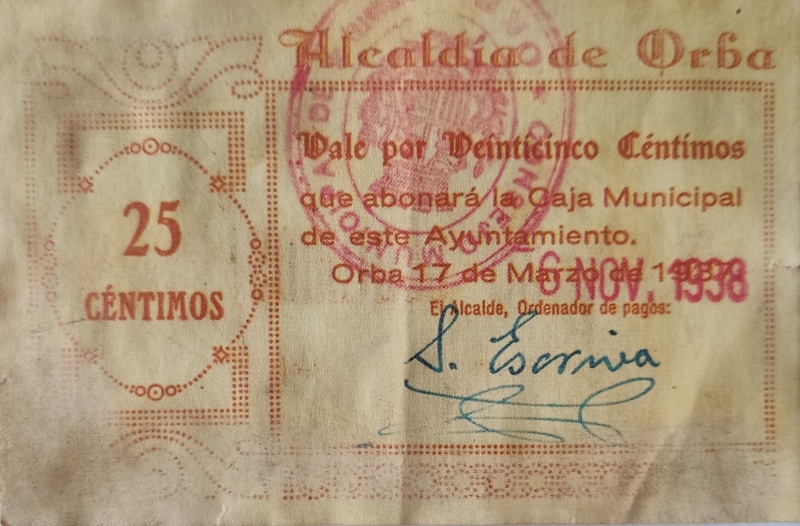 Alcaldía de Orba
Vale por Veinticinco Céntimos
que abonará la Caja Municipal
de este Ayuntamiento.
Orba 17 de Marzo de 1937
6 NOV. 1938
El Alcalde, Ordenador de pagos:
S. Escriva
25
CÉNTIMOS
CONSEJO MUNICIPAL
ORBA